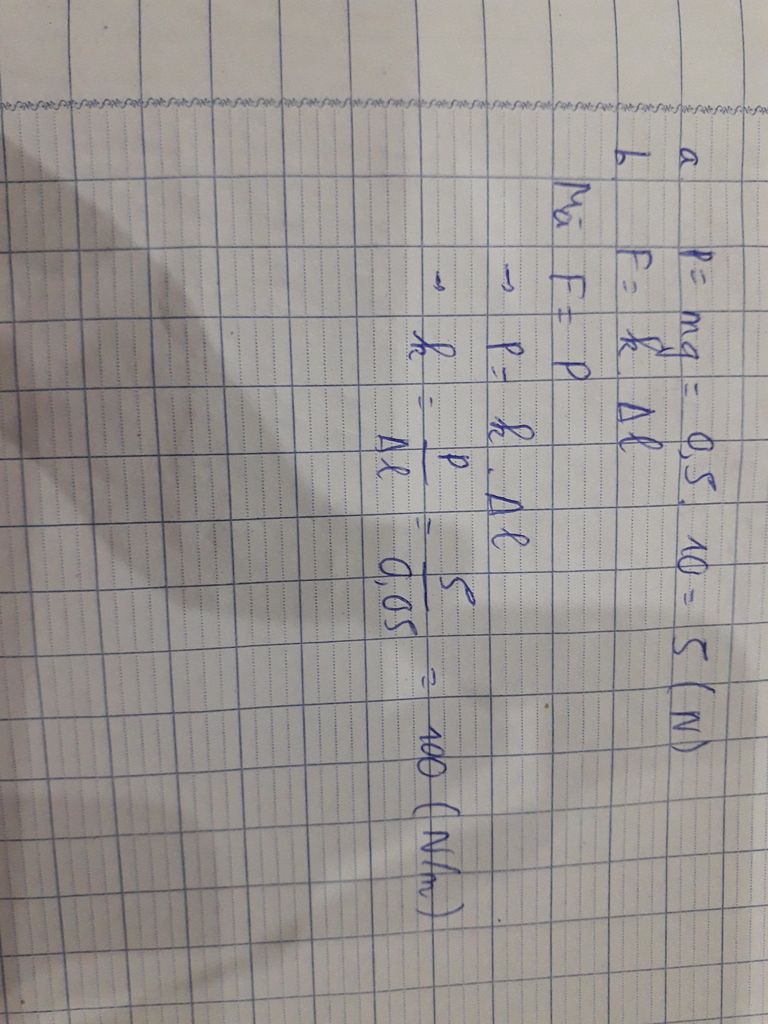 a P = mg = 0,5. 10 = 5 (N)
b, F = k. Δl
Mà F = P
→ P = k. Δl
→ k = P/Δl = 5/0,05 = 100 (N/m)